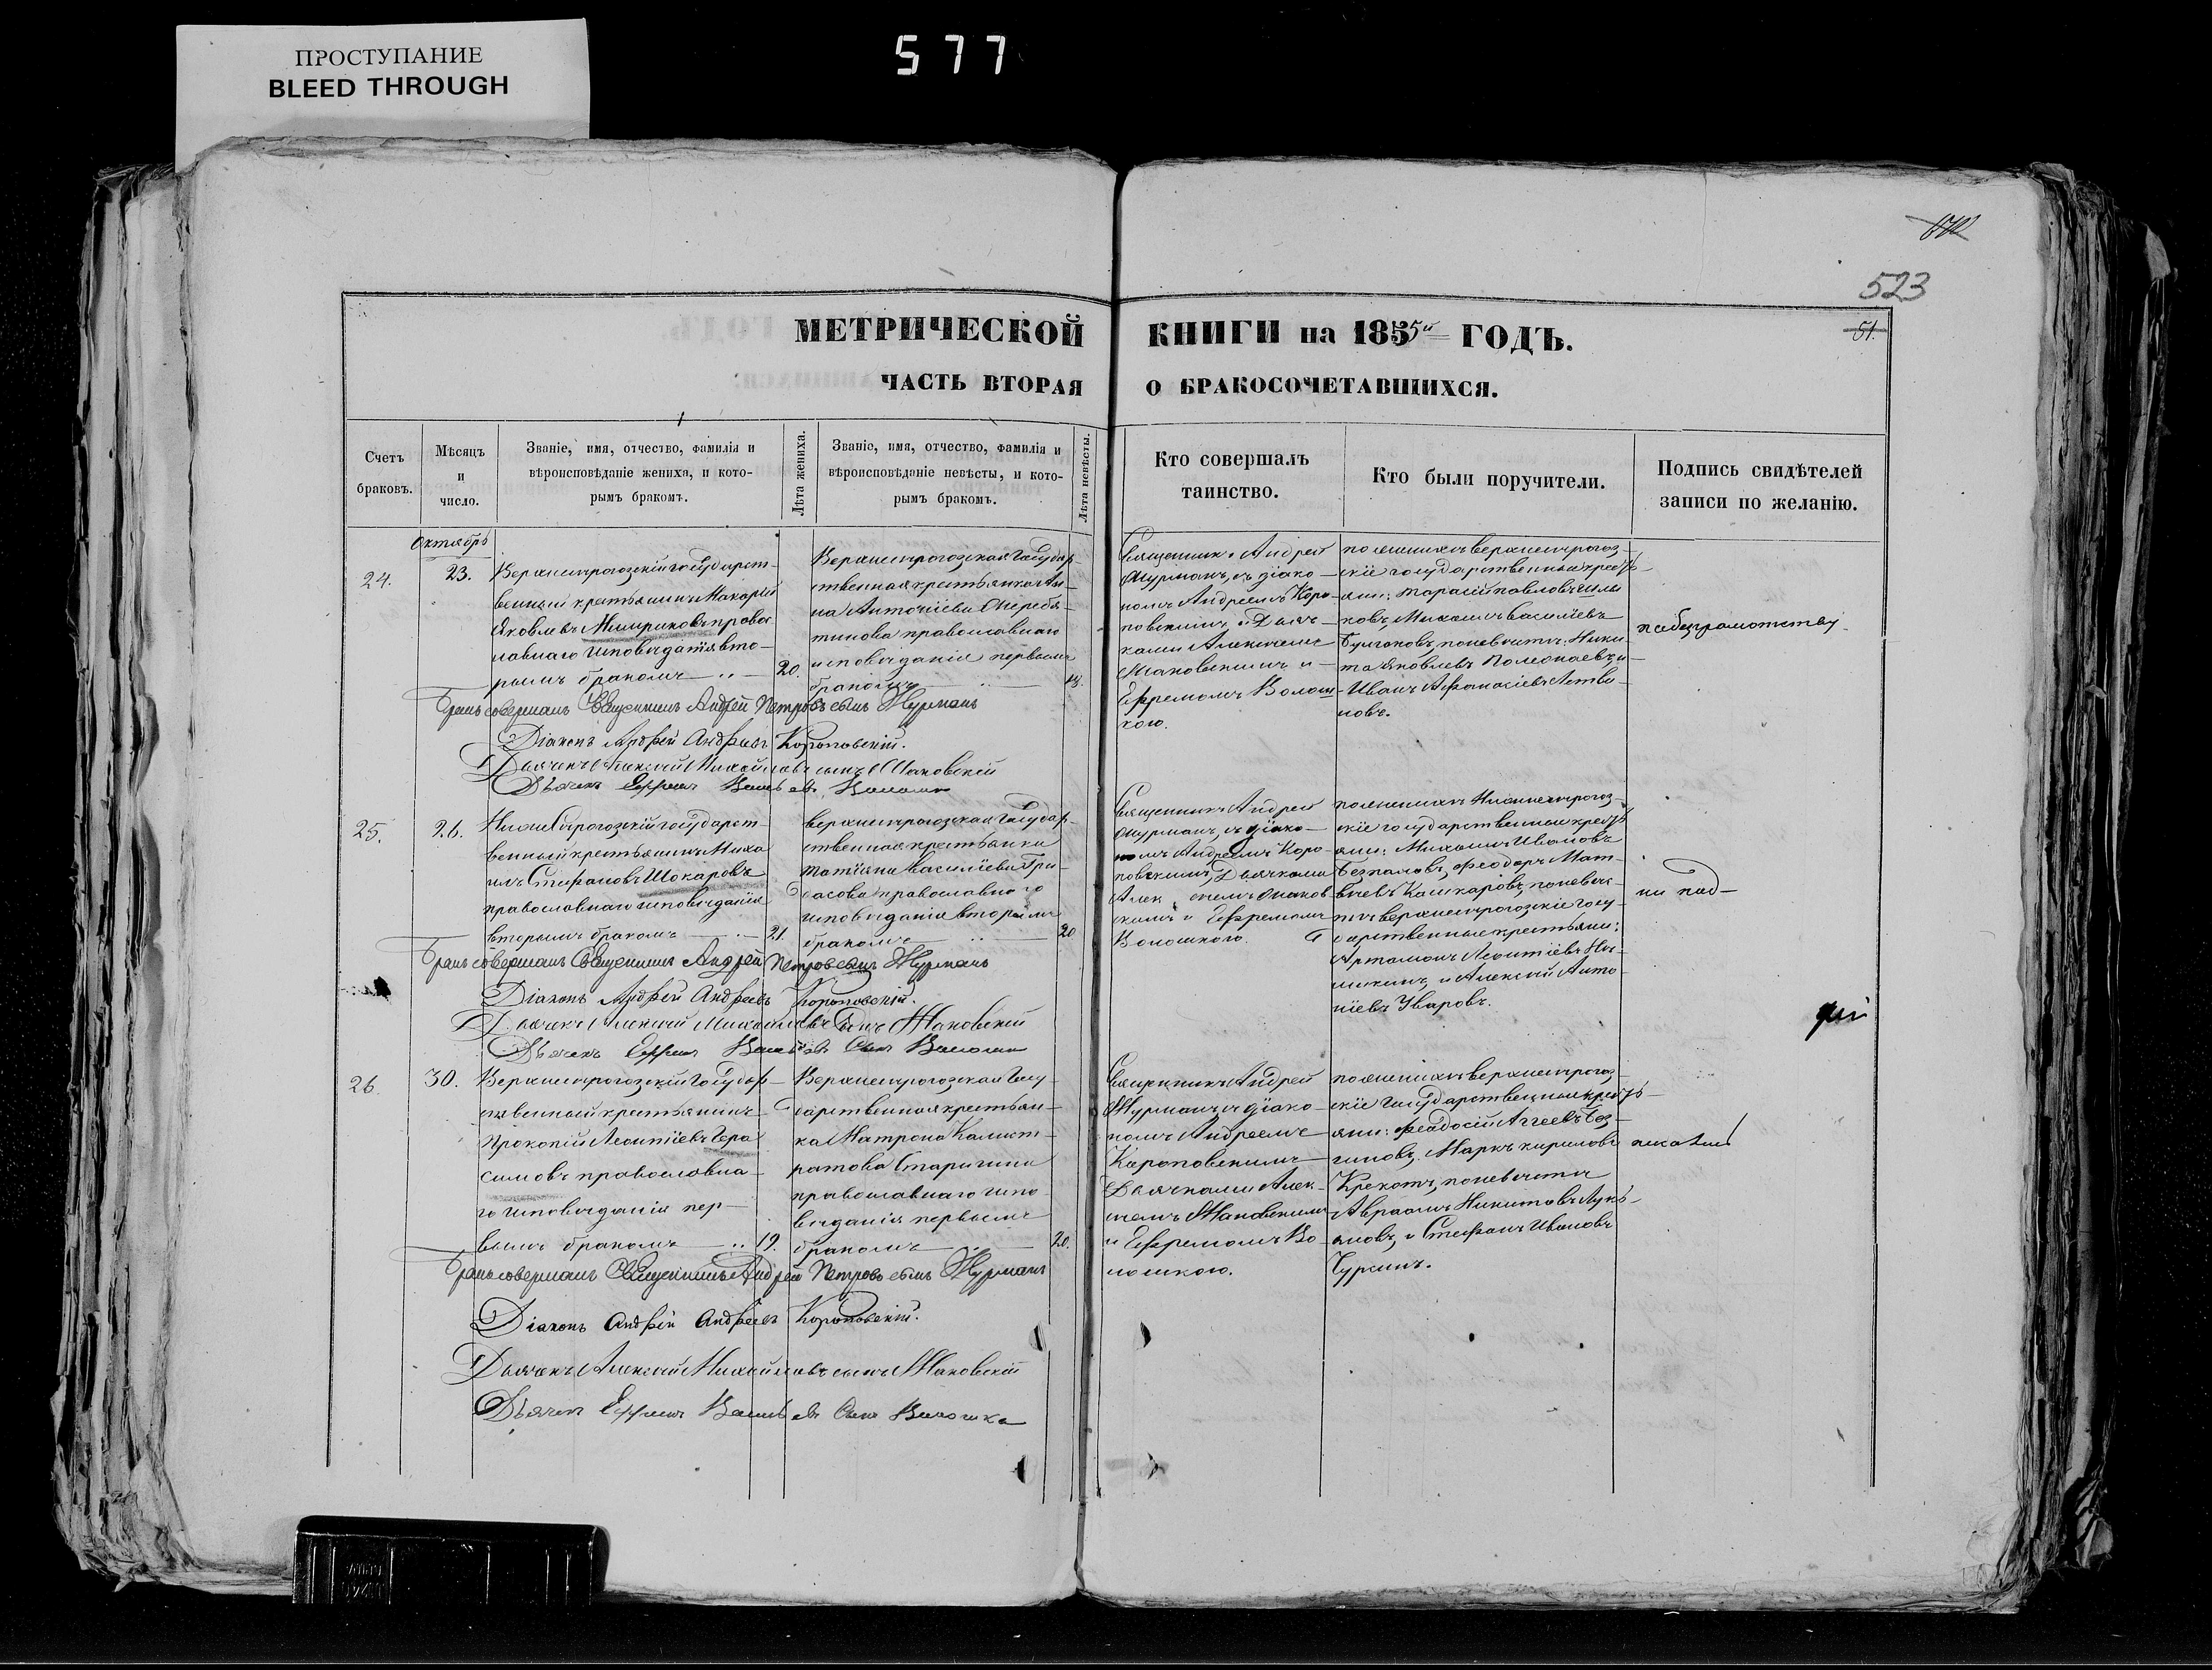 ПРОСТУПАНИЕ
BLEED THROUGH
577
523
51.
МЕТРИЧЕСКОЙ КНИГИ на 1855й ГОДЪ.
ЧАСТЬ ВТОРАЯ О БРАКОСОЧЕТАВШИХСЯ.
Счетъ
браковъ.
Мѣсяцъ
и
число.
Званіе, имя, отчество, фамилія и
вѣроисповѣданіе жениха, и кото-
рымъ бракомъ.
Лѣта жениха.
Званіе, имя, отчество, фамилія и
вѣроисповѣданіе невѣсты, и кото-
рымъ бракомъ.
Лѣта невѣсты.
Кто совершалъ
таинство.
Кто были поручители.
Подпись свидѣтелей
записи по желанію.
Октябрь
24.
23.
Верхнетрогозскій государст-
венный крестьянинъ Макарій
Яковлевъ правос
лавнаго исповѣданія вто-
рымъ бракомъ
20.
Верхнетрогозская государ-
ственная крестьянка Ан-
на Антоніева
православнаго
исповѣданія первымъ
бракомъ
18.
Священникъ Андрей
Журманъ, съ діако-
номъ Андреемъ Коро-
повскимъ, и Дьяч-
ками Алексеемъ
Маковскимъ и
Ефремомъ Волош-
кою.
по женихѣ верхнетрогоз-
скіе государственные кресть-
яне: Тарасій Павловъ
ковъ, Михаилъ Василіевъ
Булгаковъ, по невѣстѣ: Ники-
та Яковлевъ и
Иванъ Афанасіевъ Литви-
новъ.
по безграмотству
Бракъ совершалъ Священникъ Андрей Петровъ сынъ Журманъ
Діаконъ Андрей Андреевъ Короповскій.
Дьячекъ Алексѣй Михайловъ сынъ Маковскій
Дьячекъ Ефремъ Васильевъ Волошка
25.
26.
государст-
венный крестьянинъ Миха
илъ Стефановъ Шокаровъ
православнаго исповѣданія
вторымъ бракомъ
21.
верхнетрогозская государ-
ственная крестьянка
Татіана Василіева
православнаго
исповѣданія вторымъ
бракомъ
20
Священникъ Андрей
Журманъ, съ діако-
номъ Андреемъ Коро-
повскимъ, Дьячками
Алексеемъ Маков
скимъ и Ефремомъ
Волошкою.
по женихѣ
скіе государственные кресть
яне: Михаилъ Ивановъ
Феодоръ Мат-
вѣевъ Кашкаровъ, по невѣс-
тѣ верхнетрогозскіе госу-
дарственные крестьяне:
Артамонъ Леонтіевъ
и Алексѣй Анто
ніевъ Уваровъ.
ни под-
Бракъ совершалъ Священникъ Андрей Петровъ сынъ Журманъ
Діаконъ Андрей Андреевъ Короповскій.
Дьячекъ Алексѣй Михайловъ сынъ Маковскій
Дьячекъ Ефремъ Васильевъ Сынъ Волошка
26.
30.
Верхнетрогозскій Государ-
ственный крестьянинъ
Прокопій Леонтіевъ Гера
симовъ православна
го исповѣданія пер-
вымъ бракомъ
19.
Верхнетрогозская Госу-
дарственная крестьян-
ка Матрона Калист-
ратова Старигина
православнаго испо-
вѣданія первымъ
бракомъ
20.
Священникъ Андрей
Журманъ съ діако-
номъ Андреемъ
Короповскимъ
Дьячками Алек-
сеемъ Маковскимъ
и Ефремомъ Во-
лошкою.
по женихѣ верхнетрогоз-
скіе Государственные кресть-
яне: Феодосій Аггеевъ
Маркъ Кириловъ
по невѣстѣ
Авраамъ Никитовъ Лукь-
яновъ, и Стефанъ Ивановъ
Чурсинъ.
Бракъ совершалъ Священникъ Андрей Петровъ сынъ Журманъ
Діаконъ Андрей Андреевъ Короповскій.
Дьячекъ Алексѣй Михайловъ сынъ Маковскій
Дьячекъ Ефремъ Васильевъ Сынъ Волошка